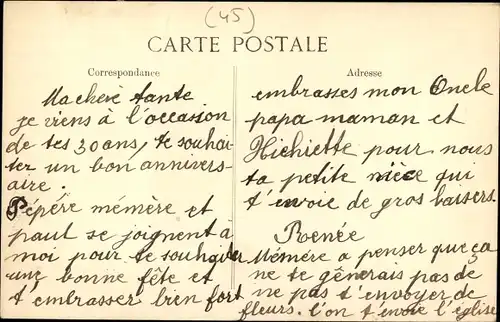 (45)
CARTE POSTALE
Correspondance
Ma chère tante
je viens à l'occasion
de tes 30 ans, te souhai-
ter un bon annivers-
aire.
Pépère mémère et
paul se joignent à
moi pour te souhaiter
une bonne fête et
t'embrasser bien fort
Adresse
embrasses mon Oncle
papa maman et
pour nous
ta petite nièce qui
t'envoie de gros baisers.
Renée
Mémère a penser que ça
ne te gênerais pas de
ne pas t'envoyer de
fleurs. l'on t'envoie l'église